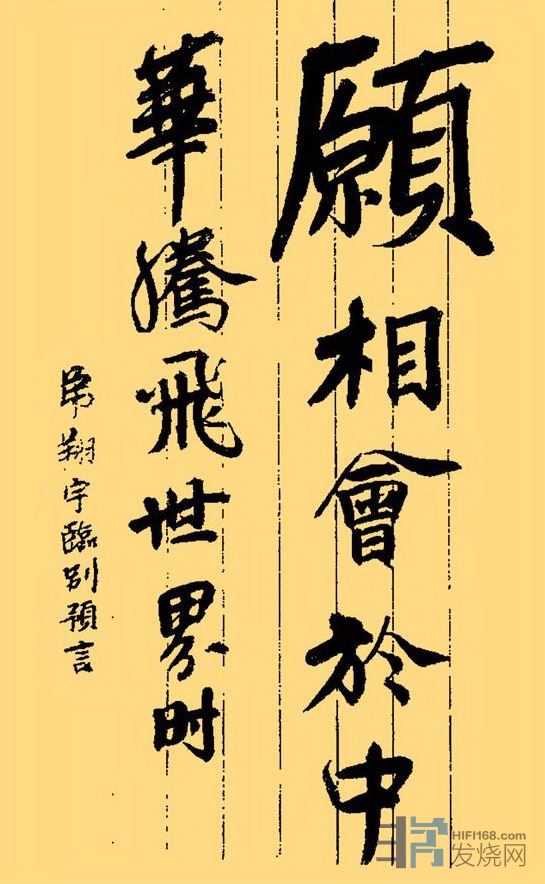 願相會於中
華騰飛世界时
弟翔宇臨别預言
HIFI168.com
发烧网